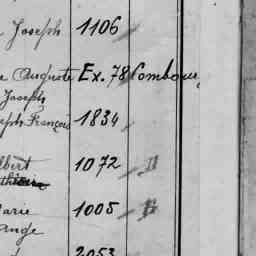 Joseph 1106
Auguste Ex. 78 Combour
Joseph
eph François 1834
lbert 1072 D
1005 B
arie
ange
2053